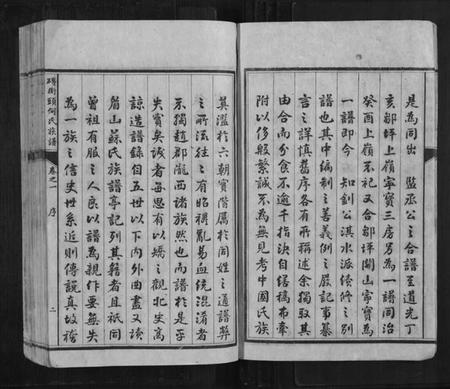 是為同出 監丞公之合譜至道光丁
亥鄒坪上嶺寧寶三房另為一譜同治
癸酉上嶺不祀又合鄒坪關山寧寶為
一譜即今 知釗公淇水派倭修之別
譜也其中編制之善義例之嚴記事纂
言之詳慎舊序各有所稱述余獨取其
由合而分食不逾千指決自居稿布牽
附以侈殷繁誠不為無見考中國氏族
莫濫於六朝實階厲於同姓之通譜弊
之所流往之有昭穆亂易血統混淆者
不獨趙郡隴西諸族然也而譜於是乎
失實矣誠者每思有以矯之觀北史高
諒造譜錄自五世以下內外曲盡又讀
眉山蘇氏族譜亭記列其籍者且祇同
曾祖有服之人良以譜為親作要無失
為一族之信史世系近則傳說真故務
磚街頭何氏族譜
卷之一 序
二